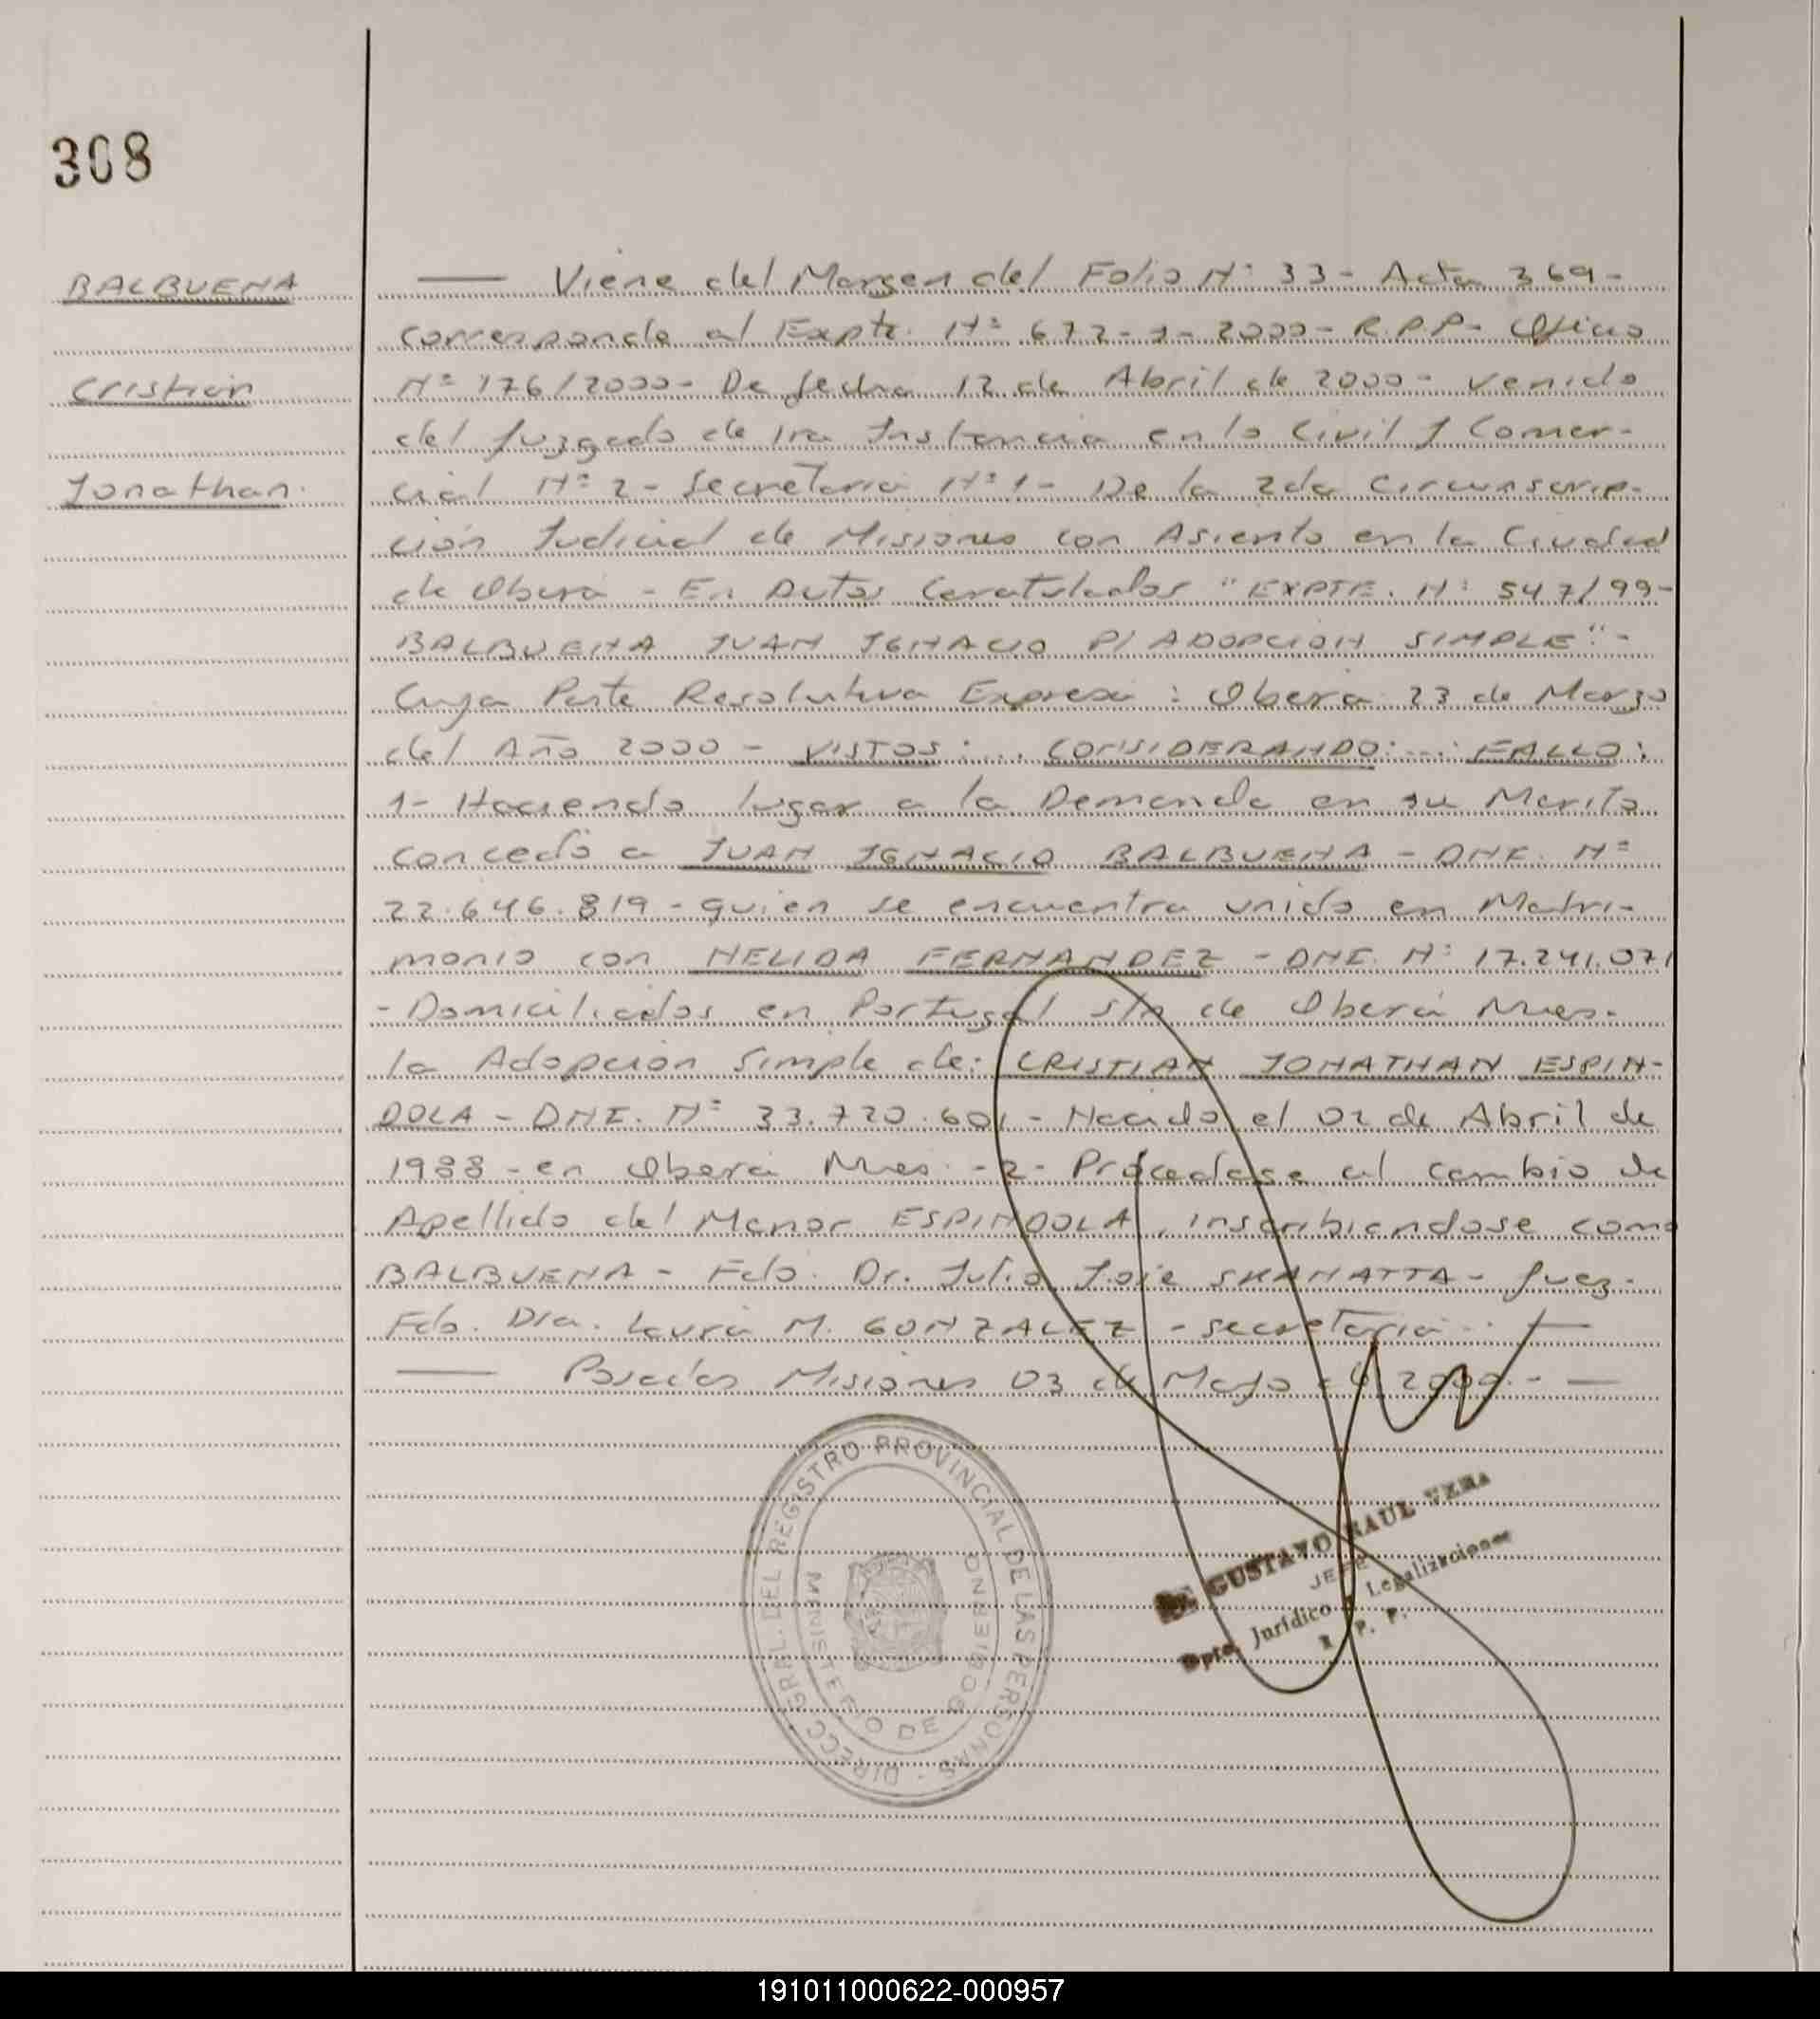 308
BALBUENA
Cristian
Jonathan.
— Viene del Margen del Folio Nº 33 - Acta 369 -
corresponde al Expte. Nº 672-J-2000 - R.P.P - Oficio
Nº 176/2000 - De fecha 12 de Abril de 2000 - venido
del Juzgado de 1ra Instancia en lo Civil y Comer-
cial Nº 2 - Secretaria Nº 1 - De la 2da Circunscrip-
ción Judicial de Misiones con Asiento en la Ciudad
de Oberá - En Autos Caratulados "EXPTE. Nº 547/99 -
BALBUENA JUAN IGNACIO P/ ADOPCION SIMPLE" -
Cuya Parte Resolutiva Expresa: Oberá 23 de Marzo
del Año 2000 - VISTOS:... CONSIDERANDO:... FALLO:
1- Haciendo lugar a la Demanda en su Merito
concedo a JUAN IGNACIO BALBUENA - DNI. Nº
22.646.819 - quien se encuentra unido en Matri-
monio con NELIDA FERNANDEZ - DNI. Nº 17.241.071
- Domiciliados en Portugal s/n de Oberá Mnes.
la Adopción Simple de: CRISTIAN JONATHAN ESPIN-
DOLA - DNI. Nº 33.720.601 - Nacido el 02 de Abril de
1988 - en Oberá Mnes. - 2- Procedase al cambio de
Apellido del Menor ESPINDOLA, inscribiendose como
BALBUENA - Fdo. Dr. Julio José SKANATTA - Juez -
Fdo. Dra. Laura M. GONZALEZ - Secretaria. —
— Posadas Misiones 03 de Mayo de 2000. - —
DIRECC. GRAL. DEL REGISTRO PROVINCIAL DE LAS PERSONAS -
MINISTERIO DE GOBIERNO
GUSTAVO RAUL VERA
JEFE
Dpto. Jurídico y Legalizaciones
R. P. P.
191011000622-000957